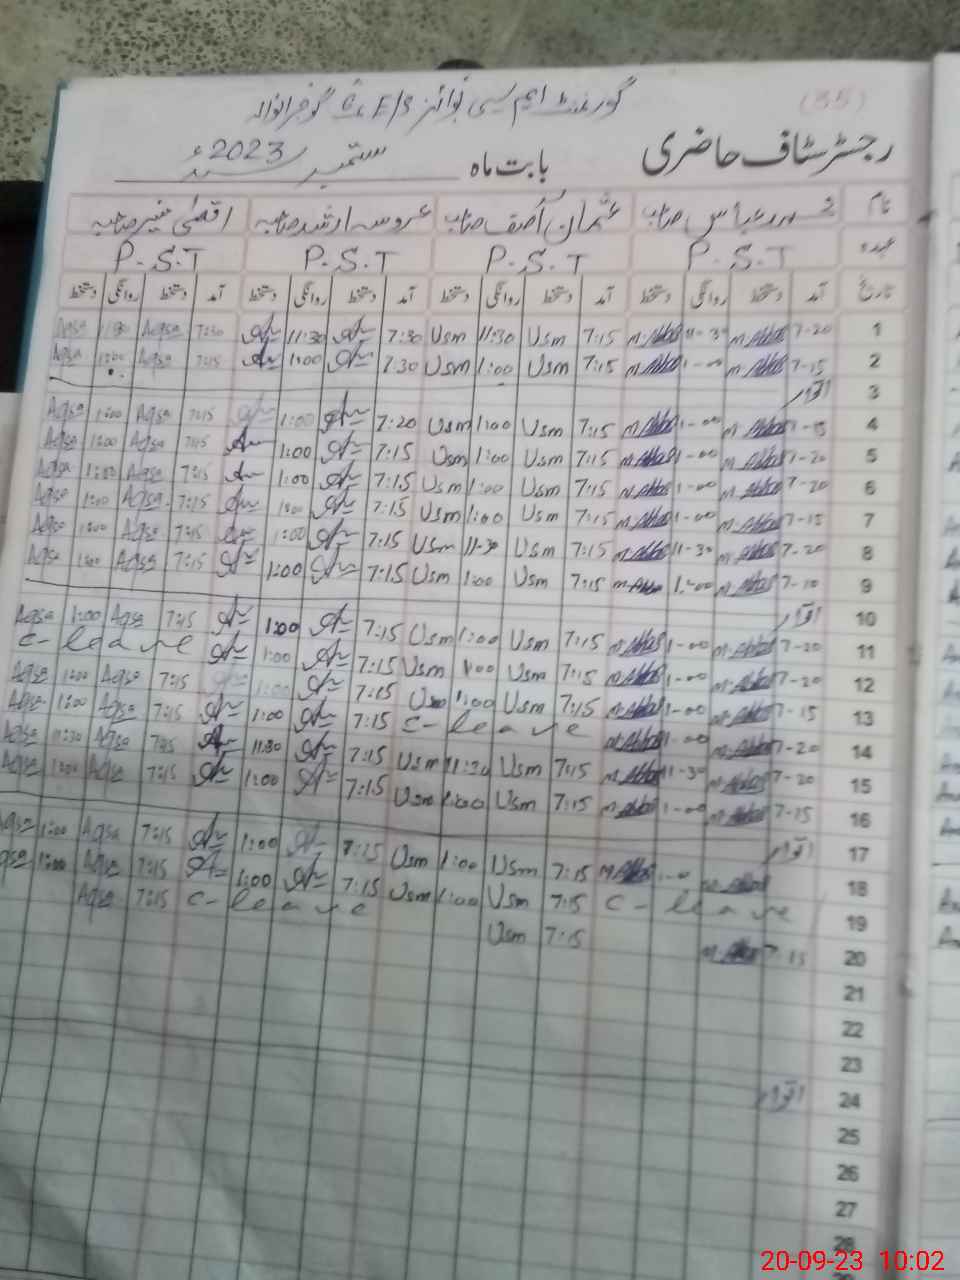 (35)
گورنمنٹ ایم سی بوائز E/S گوجرانوالہ
رجسٹر سٹاف حاضری بابت ماہ ستمبر 2023ء
نام عباس صاحب عثمان آصف صاحب عروسہ ارشد صاحبہ اقصیٰ منیر صاحبہ
عہدہ P.S.T P.S.T P.S.T P.S.T
تاریخ آمد دستخط روانگی دستخط آمد دستخط روانگی دستخط آمد دستخط روانگی دستخط آمد دستخط روانگی دستخط
1 7-20 M.Abbas 11-30 M.Abbas 7:15 Usm 11:30 Usm 7:30 11:30 7:30 Aqsa 11:30 Aqsa
2 7-15 M.Abbas 1-00 M.Abbas 7:15 Usm 1:00 Usm 7:30 1:00 7:15 Aqsa 1:00 Aqsa
3 اتوار
4 7-15 M.Abbas 1-00 M.Abbas 7:15 Usm 1:00 Usm 7:20 1:00 7:15 Aqsa 1:00 Aqsa
5 7-20 M.Abbas 1-00 M.Abbas 7:15 Usm 1:00 Usm 7:15 1:00 7:15 Aqsa 1:00 Aqsa
6 7-20 M.Abbas 1-00 M.Abbas 7:15 Usm 1:00 Usm 7:15 1:00 7:15 Aqsa 1:00 Aqsa
7 7-15 M.Abbas 1-00 M.Abbas 7:15 Usm 1:00 Usm 7:15 1:00 7:15 Aqsa 1:00 Aqsa
8 7-20 M.Abbas 11-30 M.Abbas 7:15 Usm 11:30 Usm 7:15 1:00 7:15 Aqsa 1:00 Aqsa
9 7-20 M.Abbas 1-00 M.Abbas 7:15 Usm 1:00 Usm 7:15 1:00 7:15 Aqsa 1:00 Aqsa
10 اتوار
11 7-20 M.Abbas 1-00 M.Abbas 7:15 Usm 1:00 Usm 7:15 1:00 7:15 Aqsa 1:00 Aqsa
12 7-20 M.Abbas 1-00 M.Abbas 7:15 Usm 1:00 Usm 7:15 1:00 C-leave
13 7-15 M.Abbas 1-00 M.Abbas 7:15 Usm 1:00 Usm 7:15 1:00 7:15 Aqsa 1:00 Aqsa
14 7-20 M.Abbas 1-00 M.Abbas C-leave 7:15 1:00 7:15 Aqsa 1:00 Aqsa
15 7-20 M.Abbas 11-30 M.Abbas 7:15 Usm 11:30 Usm 7:15 11:30 7:15 Aqsa 11:30 Aqsa
16 7-15 M.Abbas 1-00 M.Abbas 7:15 Usm 1:00 Usm 7:15 1:00 7:15 Aqsa 1:00 Aqsa
17 اتوار
18 M.Abbas M.Abbas 7:15 Usm 1:00 Usm 7:15 1:00 7:15 Aqsa 1:00 Aqsa
19 C-leave 7:15 Usm 1:00 Usm 7:15 1:00 7:15 Aqsa 1:00 Aqsa
20 7:15 M.Abbas 7:15 Usm C-leave 7:15 Aqsa
21
22
23
24 اتوار
25
26
27
28
20-09-23 10:02